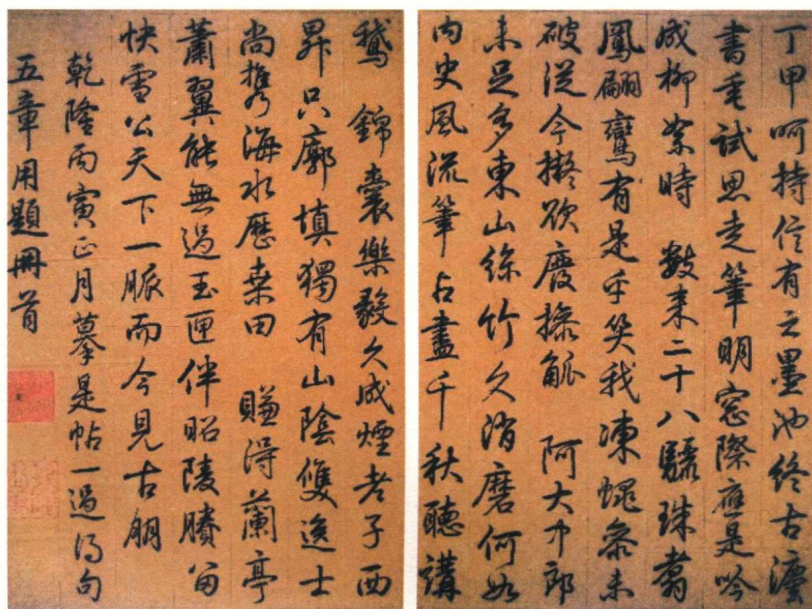 丁甲呵持信有之墨池終古瀋
書垂試思走筆明窓際應是吟
成柳絮時 數來二十八驪珠翥
鳳翩鸞有是乎笑我凍蠅參未
破從今擬欲廢操觚 阿大中郎
未足多東山絲竹久消磨何如
內史風流筆占盡千秋聽講
鵞 錦囊樂毅久成煙老子西
昇只廓填獨有山陰雙逸士
尚攜海水歷桑田 賺得蘭亭
蕭翼能無過玉匣伴昭陵賸留
快雪公天下一脈而今見古朋
乾隆丙寅正月摹是帖一過得句
五章用題冊首